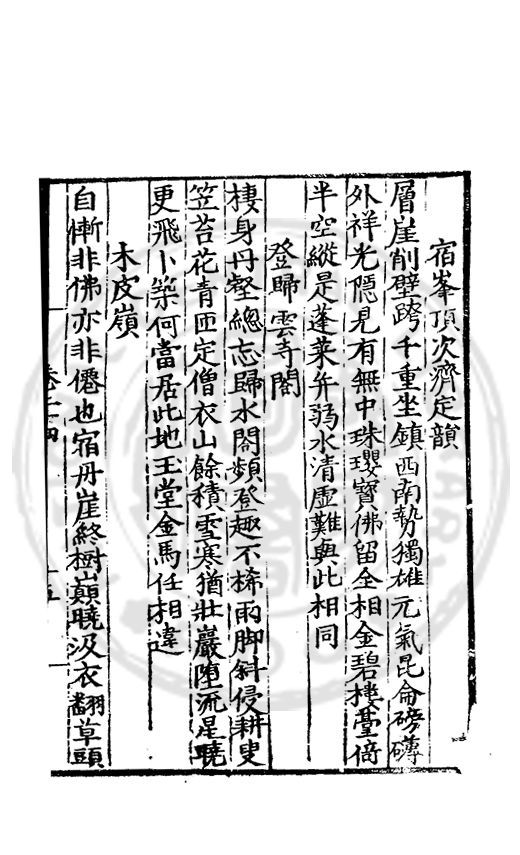 宿峯頂次濟定韻
層崖削壁跨千重坐鎮西南勢獨雄元氣昆侖磅礴
外祥光隱見有無中珠瓔寶佛留全相金碧樓臺倚
半空縱是蓬萊弁弱水清虛難與此相同
登歸雲寺閣
棲身丹壑總忘歸水閣頻登趣不稀雨脚斜侵耕叟
笠苔花青匝定僧衣山餘積雪寒猶壯巖墮流星曉
更飛卜築何當居此地玉堂金馬任相違
木皮嶺
自慚非佛亦非僊也宿丹崖終樹巔曉汲衣翻草頭